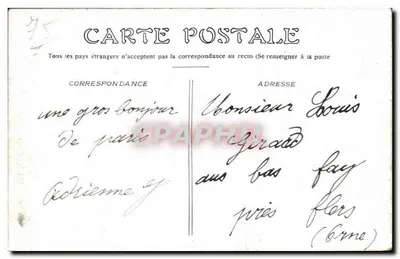 75
CARTE POSTALE
Tous les pays étrangers n'acceptent pas la correspondance au recto (Se renseigner à la poste
CORRESPONDANCE
ADRESSE
une gros bonjour
de paris
Adrienne
Monsieur Louis
Girard
aus bas fay
près flers
(Orne)